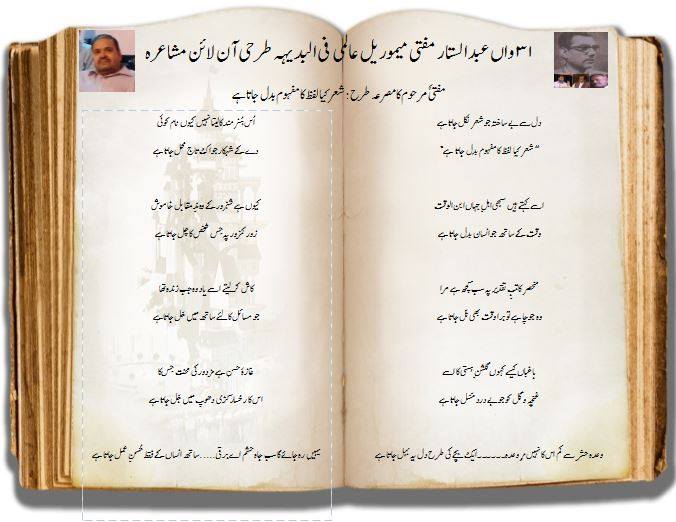 ۳۱ واں عبدالستار مفتی میموریل عالمی فی البدیہہ طرحی آن لائن مشاعرہ
مفتیؔ مرحوم کا مصرعہ طرح : شعر کیا لفظ کا مفہوم بدل جاتا ہے
دل سے بے ساختہ جو شعر نکل جاتا ہے
"شعر کیا لفظ کا مفہوم بدل جاتا ہے"
اسے کہتے ہیں سبھی اہلِ جہاں ابن الوقت
وقت کے ساتھ جو انسان بدل جاتا ہے
منحصر کاتبِ تقدیر پہ سب کچھ ہے مرا
وہ جو چاہے تو برا وقت بھی ٹل جاتا ہے
باغباں کیسے کہوں گلشنِ ہستی کا اسے
غنچہ و گل کو جو بے درد مسل جاتا ہے
وعدہ حشر سے کم اس کا نہیں ہر وعدہ۔۔۔۔۔۔ایک بچے کی طرح دل یہ بہل جاتا ہے
اُس ہنر مند کا لیتا نہیں کیوں نام کوئی
دے کے شہکار جو اک تاج محل جاتا ہے
کیوں ہے شہزور کے وہ مدِ مقابل خاموش
زور کمزور پہ جس شخص کا چل جاتا ہے
کاش کر لیتے اسے یاد وہ جب زندہ تھا
جو مسائل کا لئے ساتھ میں حل جاتا ہے
غازۂ حسن ہے مزدور کی محنت جس کا
اس کا رخسار کڑی دھوپ میں جل جاتا ہے
یہیں رہ جائے گا سب جاہ و حشم اے برقی.....ساتھ انساں کے فقط حُسنِ عمل جاتا ہے